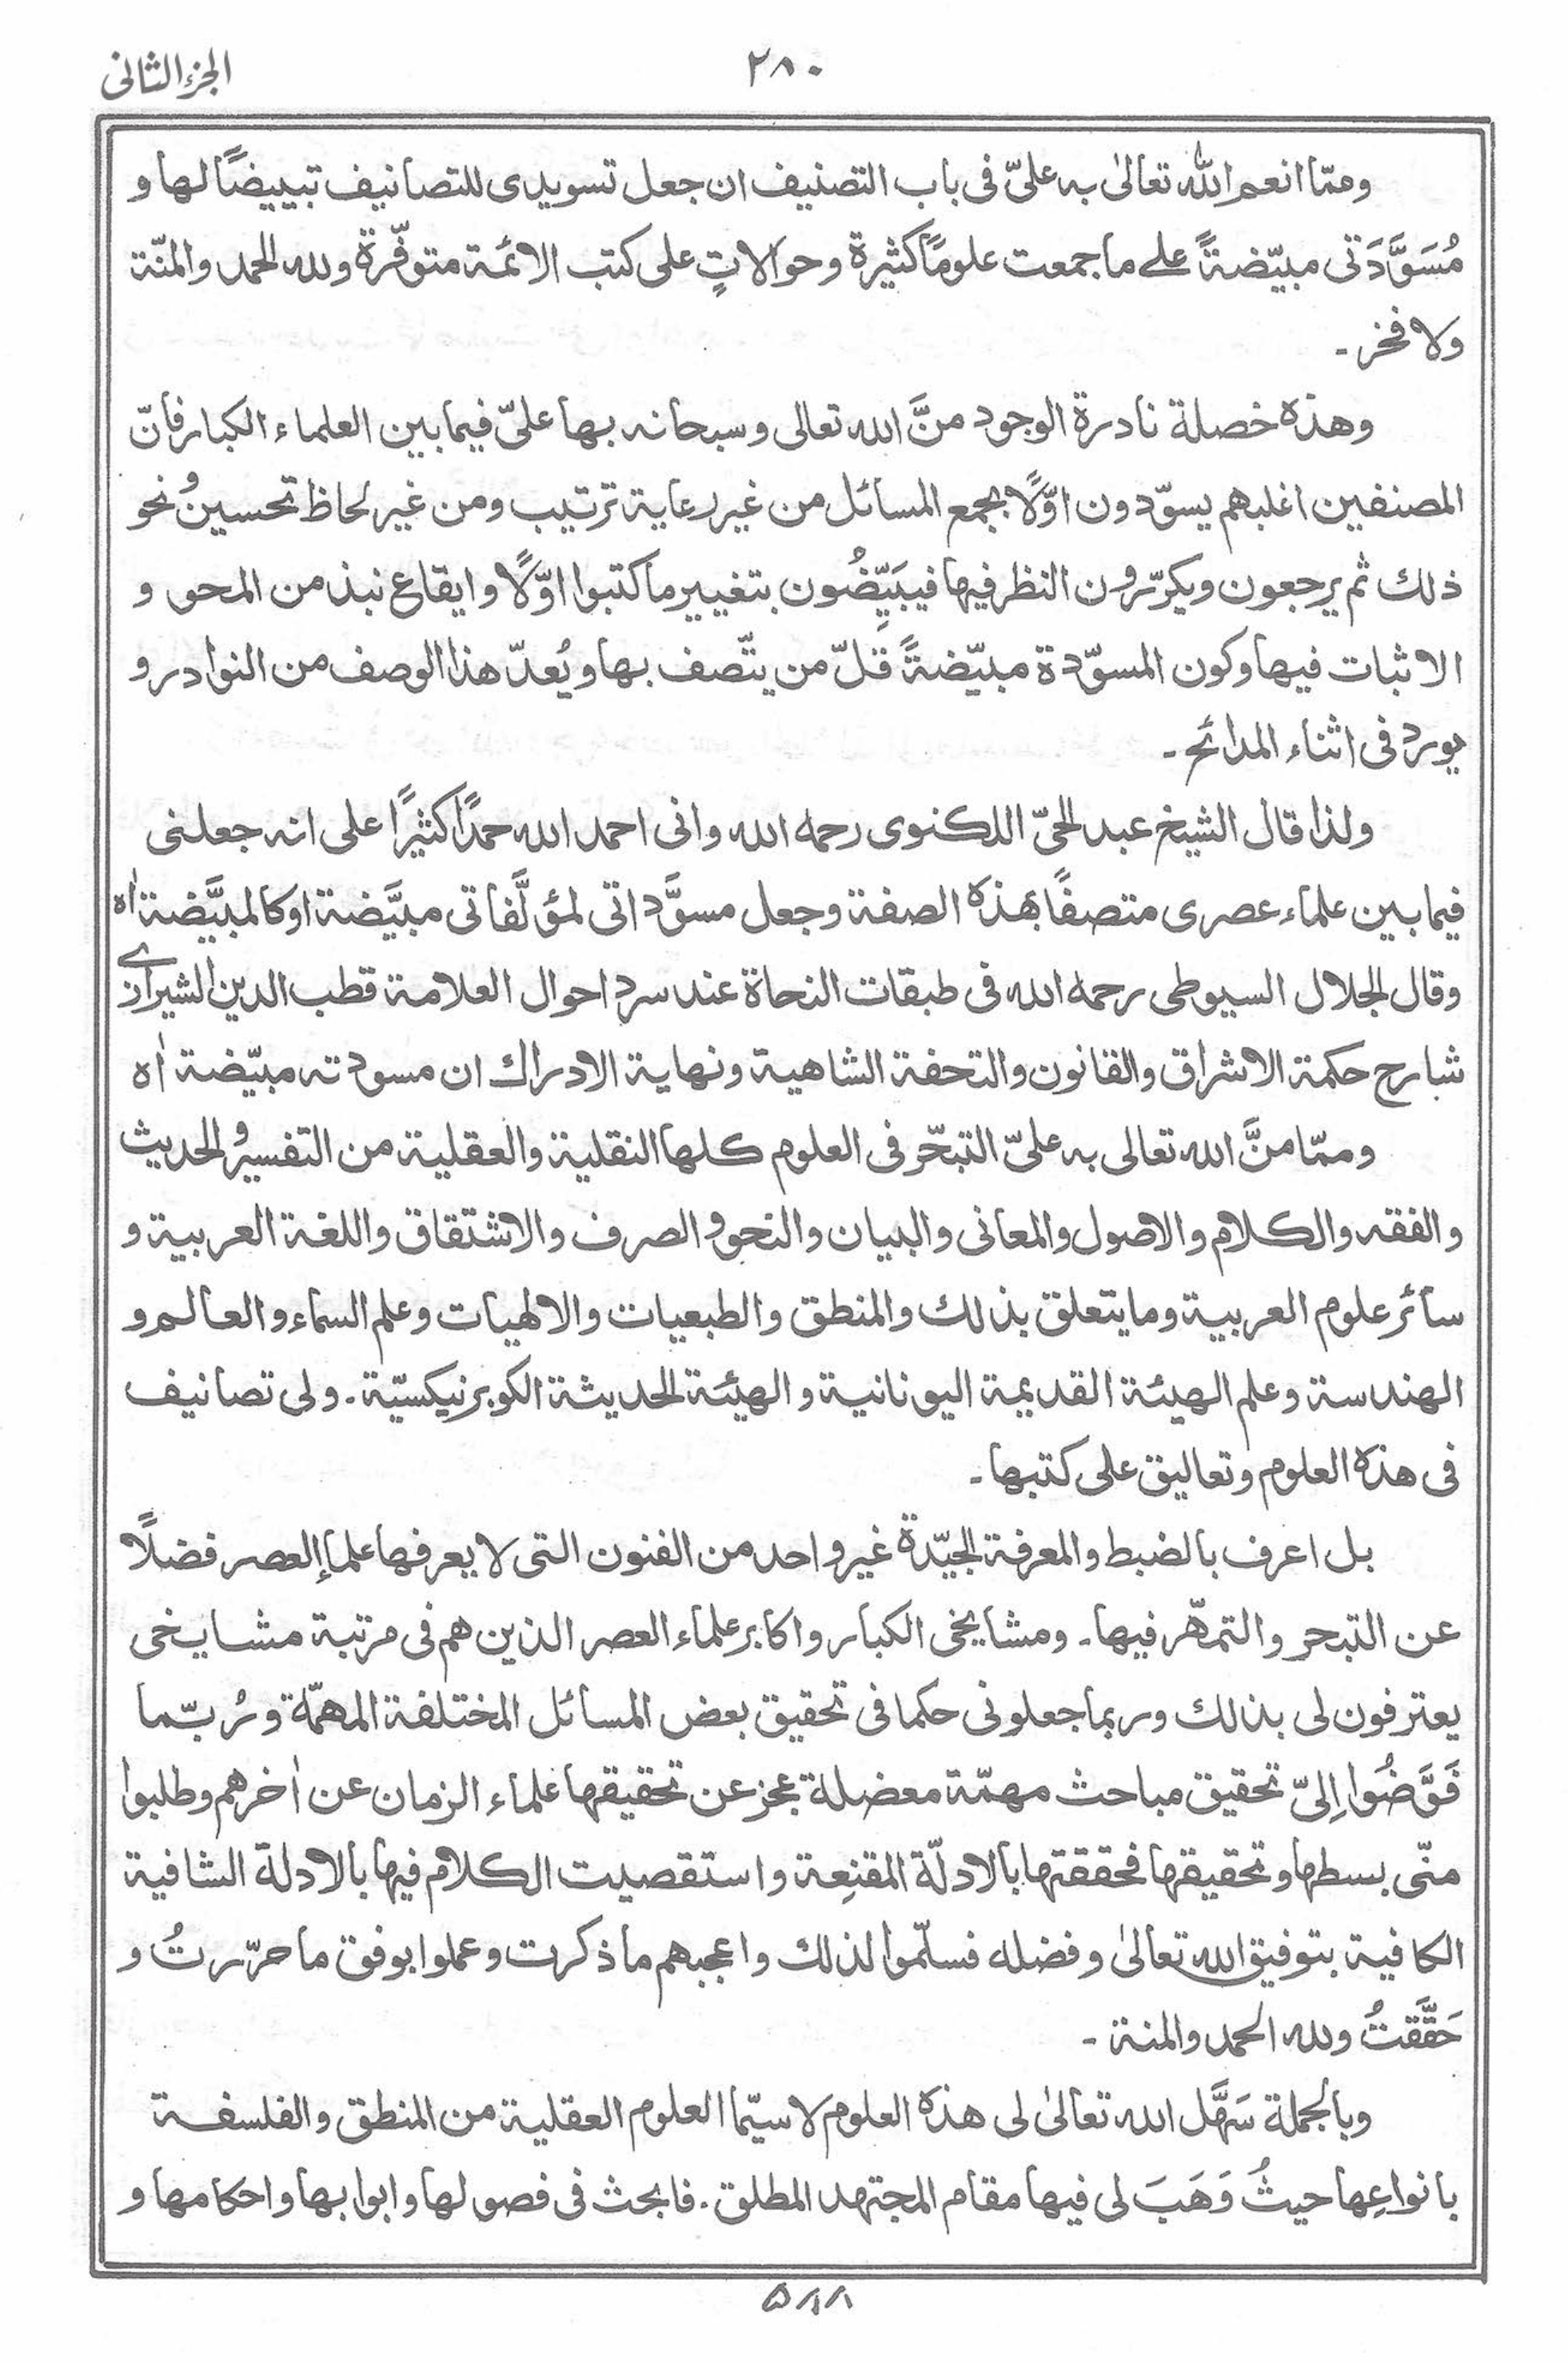 الجزء الثانی
۲۸۰
وممّا انعم اللّٰه تعالیٰ به علیّ فی باب التصنیف ان جعل تسویدی للتصانیف تبییضًا لها و
مُسَوَّدَتی مبیّضةً علے ما جمعت علومًا کثیرة وحوالاتٍ علی کتب الائمة متوفّرة ولله الحمد والمنّة
ولا فخر ۔
وهذه خصلة نادرة الوجود منَّ الله تعالی وسبحانه بها علیّ فیما بین العلماء الکبار فانّ
المصنفین اغلبهم یسوّدون اوّلًا بجمع المسائل من غیر رعایة ترتیب ومن غیر لحاظ تحسین و نحو
ذلك ثم یرجعون ویکرّرون النظر فیها فیبَیِّضُون بتغییر ما کتبوا اوّلًا وایقاع نبذ من المحو و
الاثبات فیها وکون المسوّدة مبیّضةً قلّ من یتّصف بها ویُعدّ هذا الوصف من النوادر و
یورد فی اثناء المدائح ۔
ولذا قال الشیخ عبد الحیّ اللکنوی رحمه الله وانی احمد الله حمدًا کثیرًا علی انه جعلنی
فیما بین علماء عصری متصفًا بهذه الصفة وجعل مسوَّداتی لمؤلَّفاتی مبیَّضة او کالمبیَّضة اٰه
وقال الجلال السیوطی رحمه الله فی طبقات النحاة عند سرد احوال العلامة قطب الدین الشیرازے
شارح حکمة الاشراق والقانون والتحفة الشاهیة ونهایة الادراك ان مسودته مبیّضة اٰه
وممّا منَّ الله تعالی به علیّ التبحّر فی العلوم کلها النقلیة والعقلیة من التفسیر و الحدیث
والفقه والکلام والاصول والمعانی والبیان والنحو و الصرف والاشتقاق واللغة العربیة و
سائر علوم العربیة وما یتعلق بذلك والمنطق والطبعیات والالهیات وعلم السماء والعالم و
الهندسة وعلم الهیئة القدیمة الیونانیة والهیئة الحدیثة الکوبرنیکسیّة ۔ ولی تصانیف
فی هذه العلوم وتعالیق علی کتبها ۔
بل اعرف بالضبط والمعرفة الجیّدة غیر واحد من الفنون التی لا یعرفها علماء العصر فضلًا
عن التبحر والتمهّر فیها ۔ ومشایخی الکبار واکابر علماء العصر الذین هم فی مرتبة مشایخی
یعترفون لی بذلك وربما جعلونی حکما فی تحقیق بعض المسائل المختلفة المهمّة ورُبّما
فَوَّضُوا إلیّ تحقیق مباحث مهمّة معضلة عجز عن تحقیقها علماء الزمان عن اٰخرهم وطلبوا
منّی بسطها وتحقیقها فحققتها بالادلّة المقنِعة واستقصیت الکلام فیها بالادلة الشافیة
الکافیة بتوفیق الله تعالیٰ وفضله فسلّموا لذلك واعجبهم ما ذکرت وعملوا بوفق ما حرّرتُ و
حَقَّقتُ ولله الحمد والمنة ۔
وبالجملة سَهَّل الله تعالیٰ لی هذه العلوم لا سیّما العلوم العقلیة من المنطق والفلسفة
بانواعِها حیثُ وَهَبَ لی فیها مقام المجتهد المطلق ۔ فابحث فی فصولها وابوابها واحکامها و